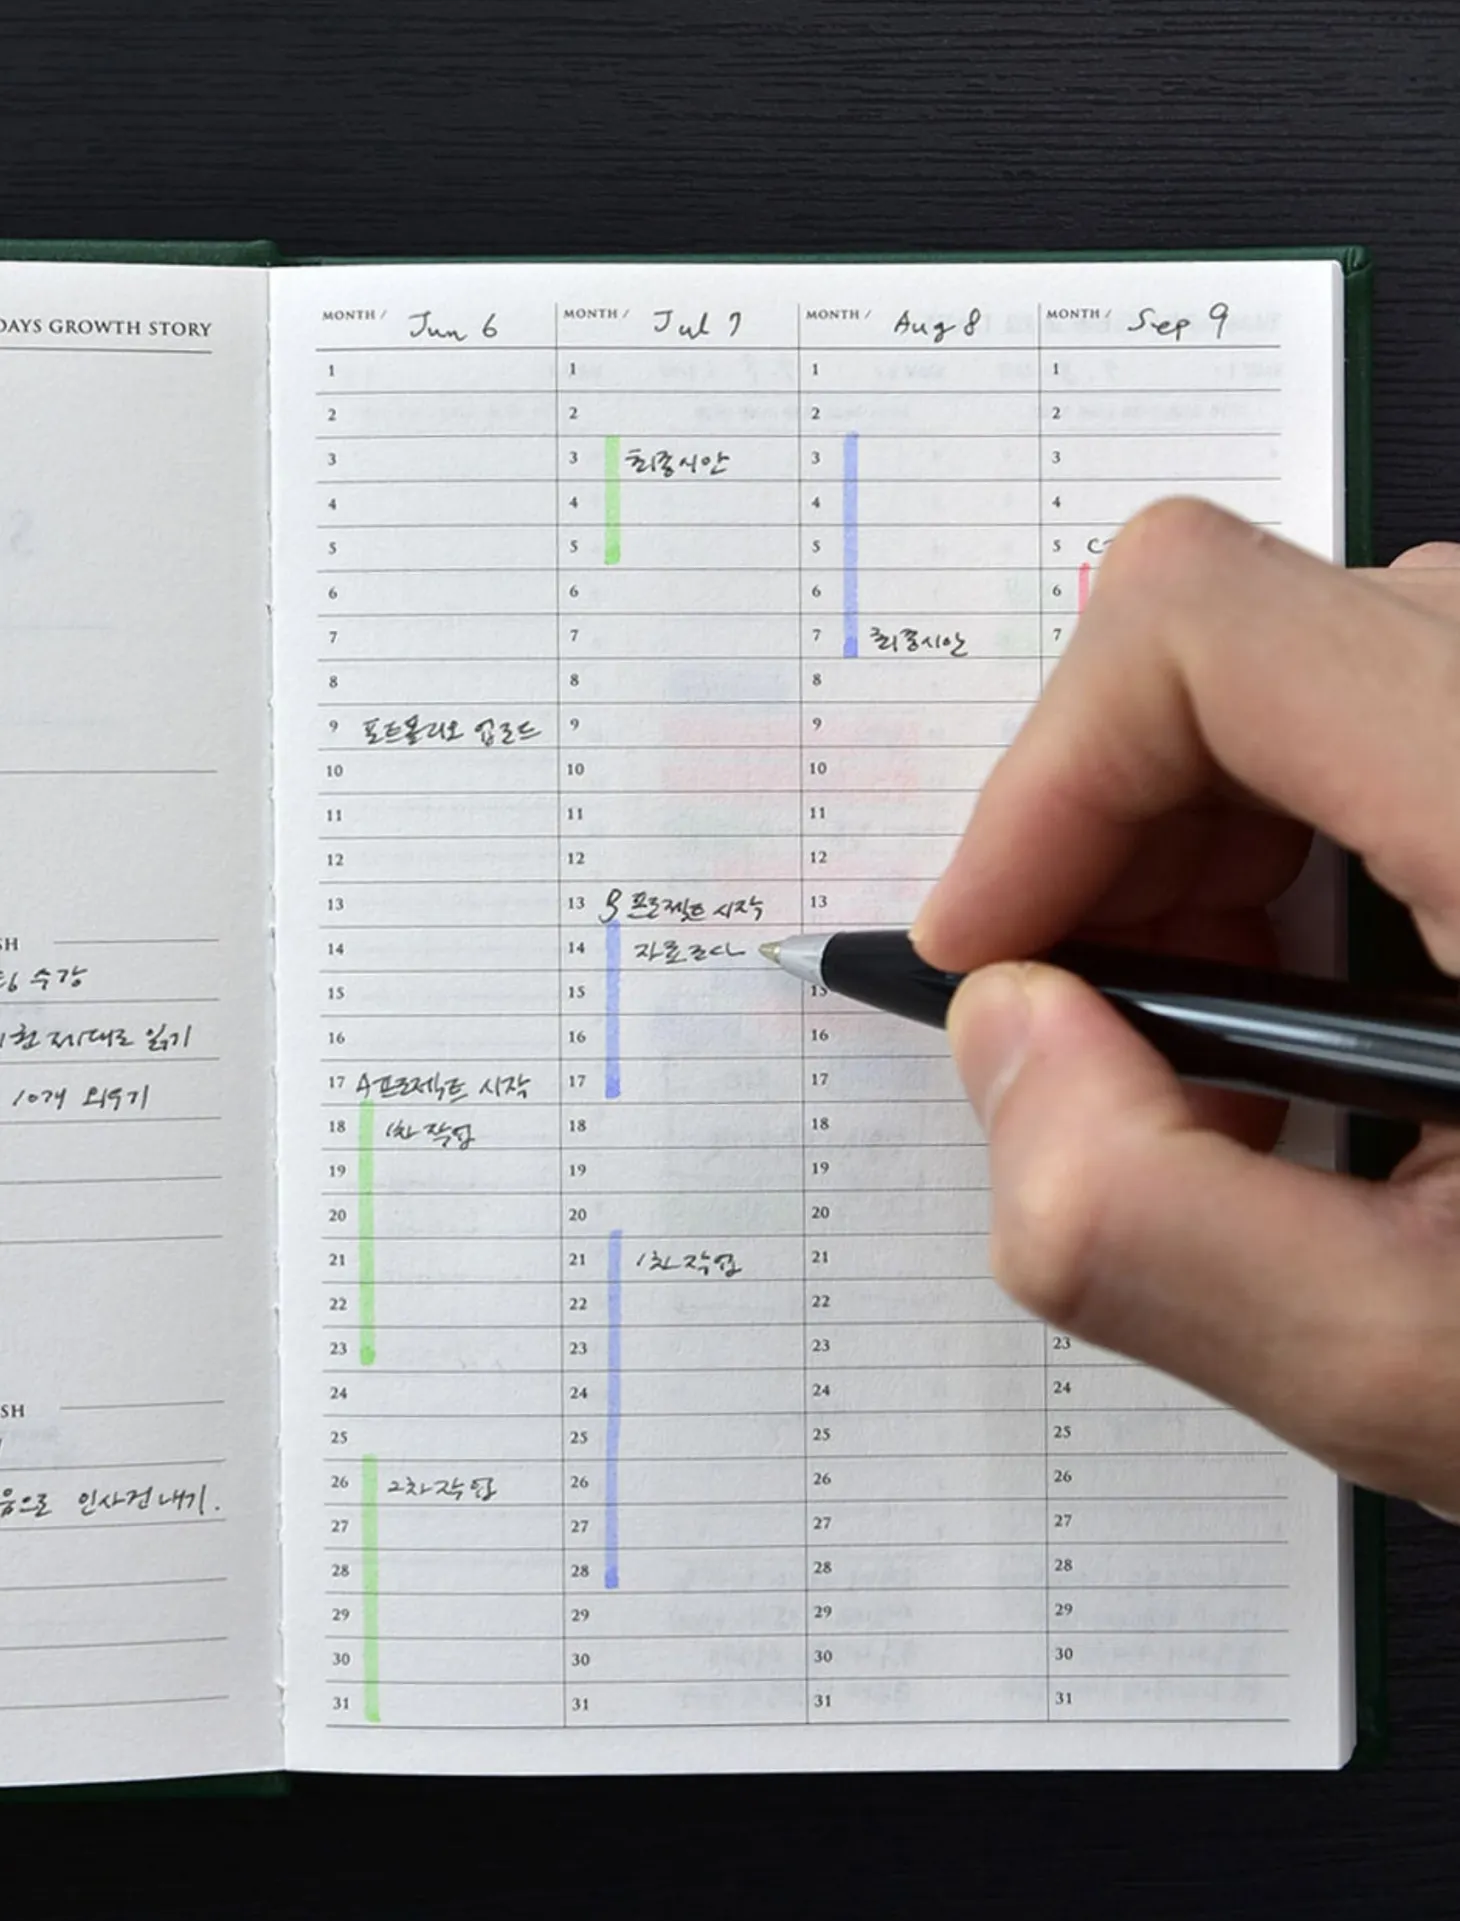 DAYS GROWTH STORY
수강
제대로 읽기
10개 외우기
SH
SH
으로 인사건내기.
MONTH / Jun 6
1
2
3
4
5
6
7
8
9 포트폴리오 업로드
10
11
12
13
14
15
16
17 A프로젝트 시작
18 1차 작업
19
20
21
22
23
24
25
26 2차 작업
27
28
29
30
31
MONTH / Jul 7
1
2
3 최종시안
4
5
6
7
8
9
10
11
12
13 프로젝트 시작
14 자료조사
15
16
17
18
19
20
21 1차 작업
22
23
24
25
26
27
28
29
30
31
MONTH / Aug 8
1
2
3
4
5
6
7 최종시안
8
9
10
11
12
13
15
16
17
18
19
20
21
22
23
24
25
26
27
28
29
30
31
MONTH / Sep 9
1
2
3
4
5
6
7
23
24
25
26
27
28
29
30
31